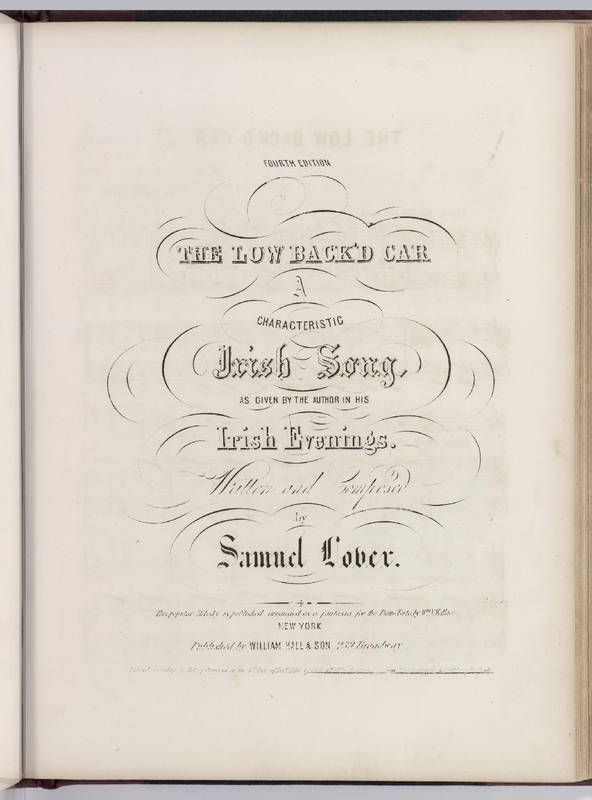 THE LOW BACK'D CAR
FOURTH EDITION
THE LOW BACK'D CAR
A
CHARACTERISTIC
Irish Song,
AS GIVEN BY THE AUTHOR IN HIS
Irish Evenings.
Written and Composed
by
Samuel Lover.
This popular Melody is published, arranged as a fantasia, for the Piano Forte, by Wm. V. Wallace.
NEW YORK
Published by WILLIAM HALL & SON 239 Broadway.
Entered according to Act of Congress in the